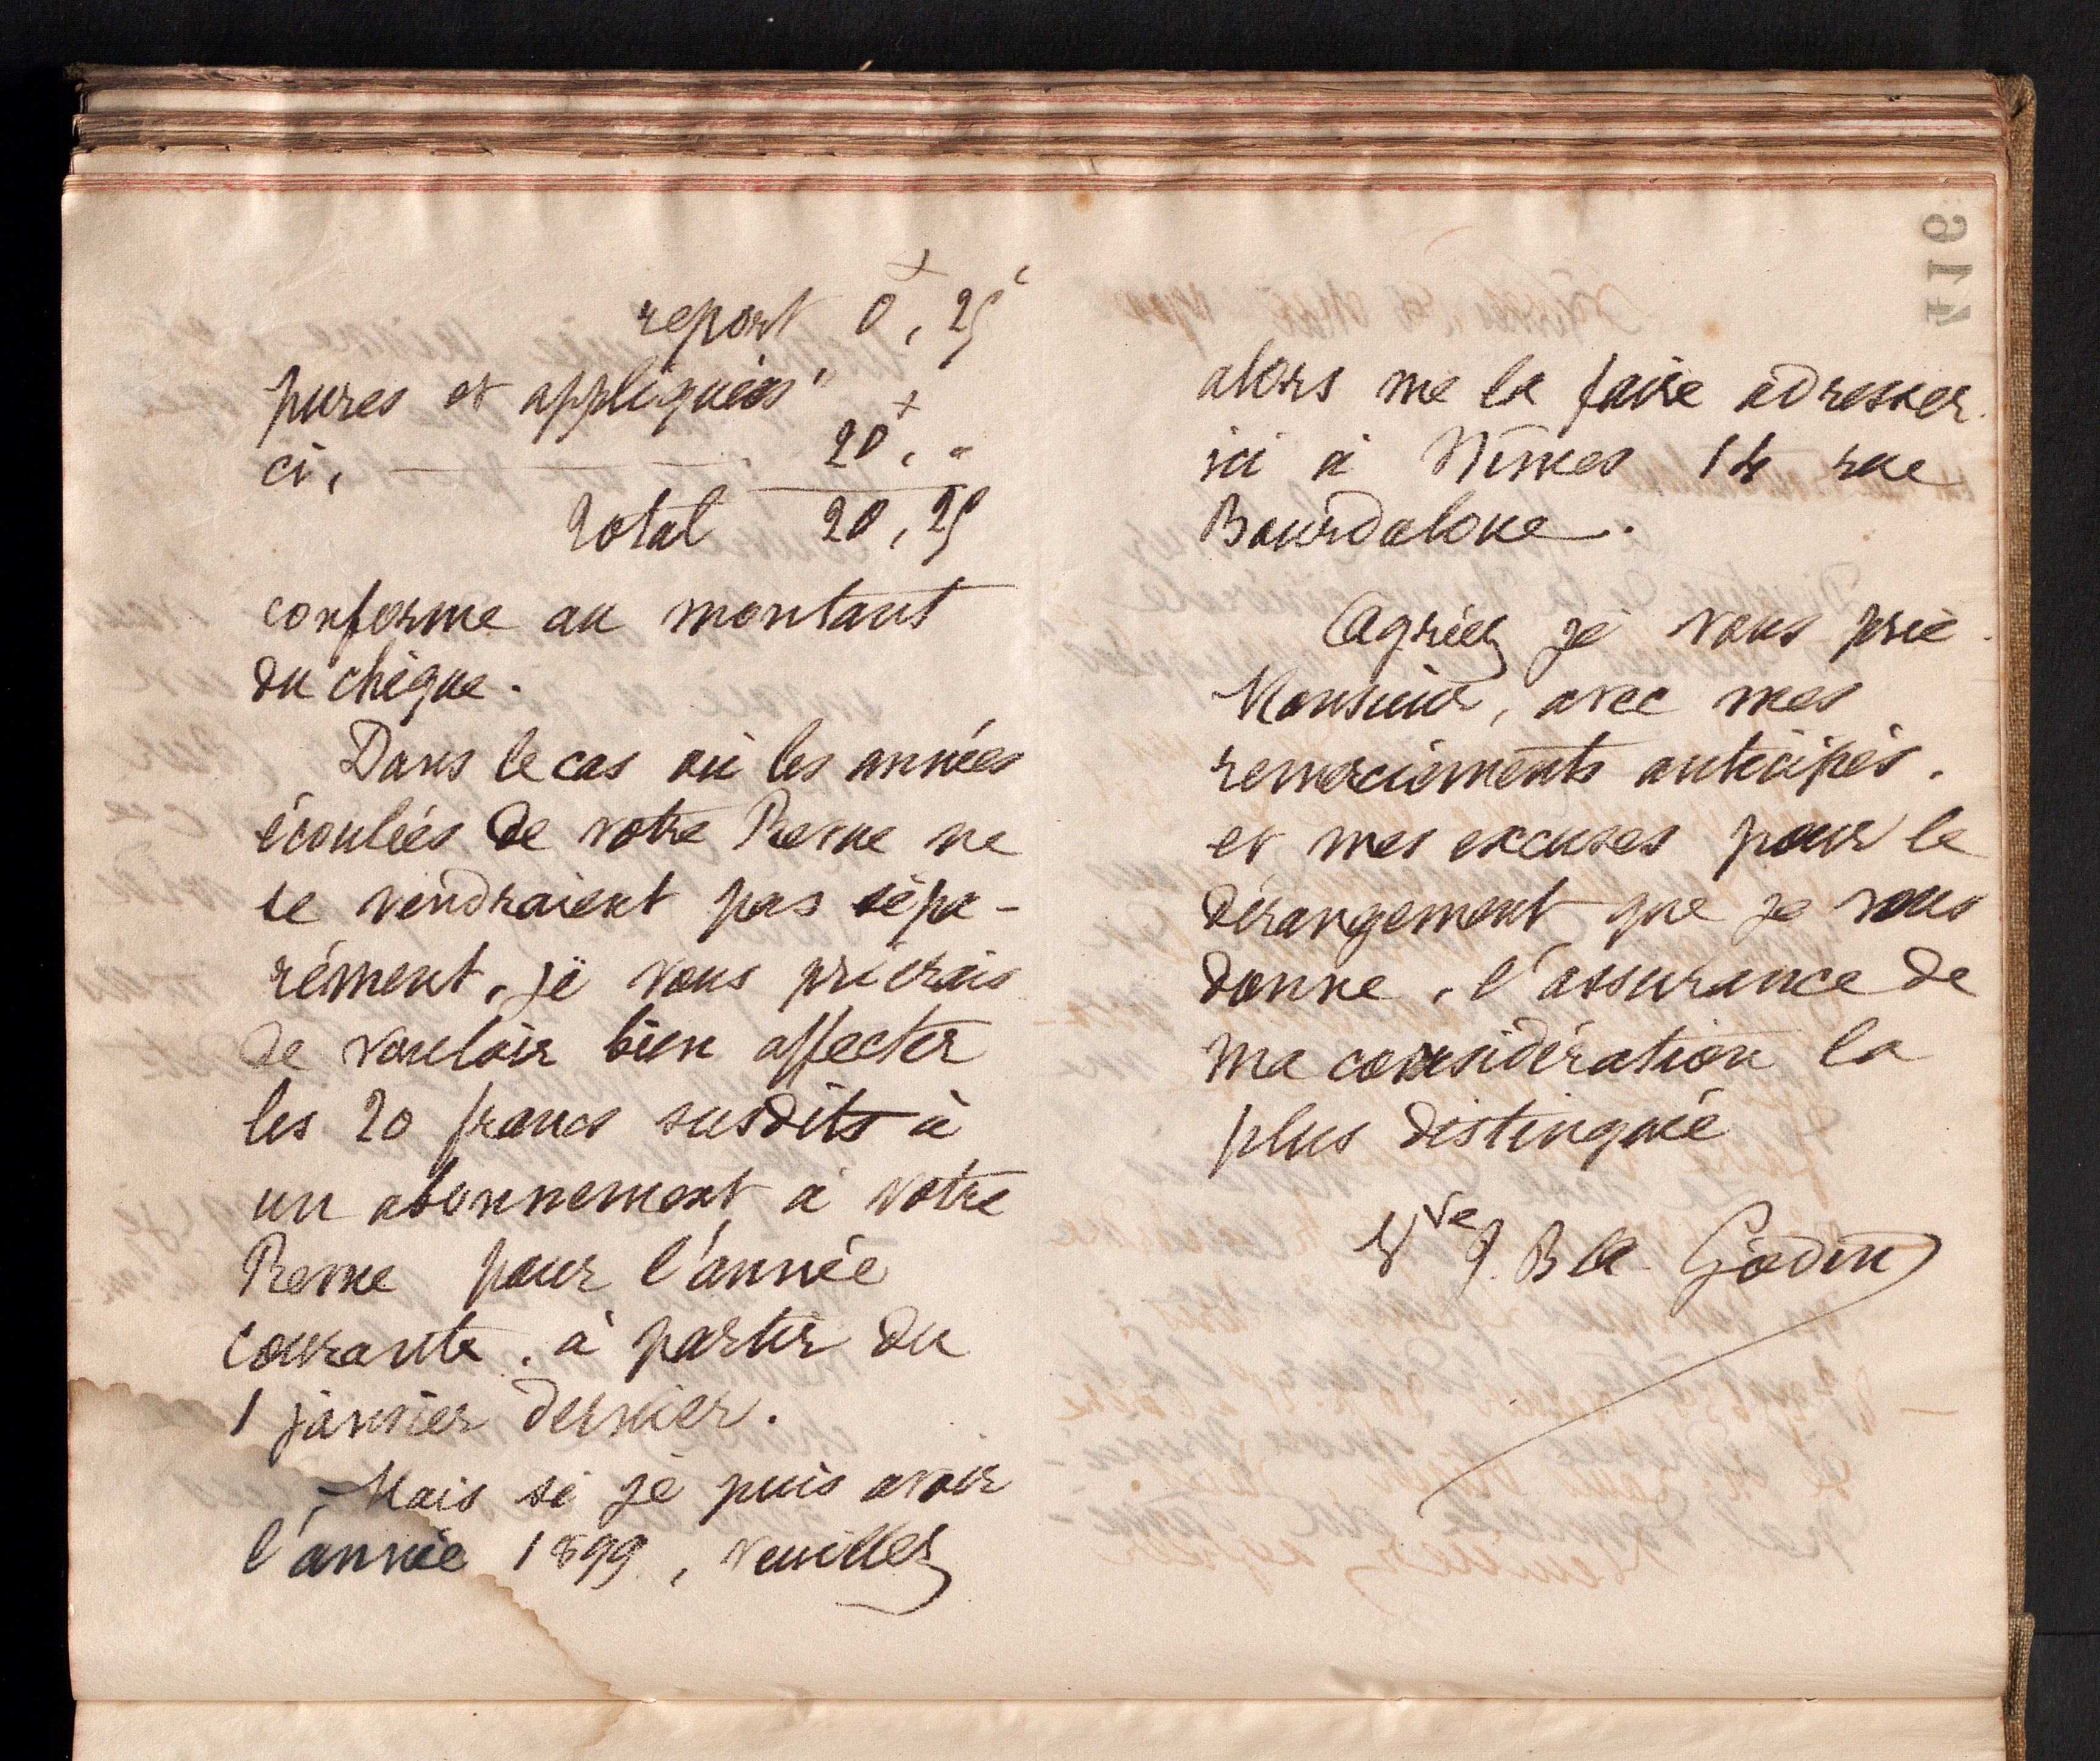 report 0, 25 c
pures et appliquées"
ci, — — — 20, "
Total 20, 25
conforme au montant
du chèque.
Dans le cas où les années
écoulées de votre Revue ne
se vendraient pas sépa-
rément, je vous prierais
de vouloir bien affecter
les 20 francs susdits à
un abonnement à votre
Revue pour l'année
courante, à partir du
1 janvier dernier.
Mais si je puis avoir
l'année 1899, veuillez
alors me la faire adresser
ici à Nîmes 14 rue
Bourdaloue.
Agréez je vous prie
Monsieur, avec mes
remerciements anticipés,
et mes excuses pour le
dérangement que je vous
donne, l'assurance de
ma considération la
plus distinguée
Vve J. Bte Godin
416